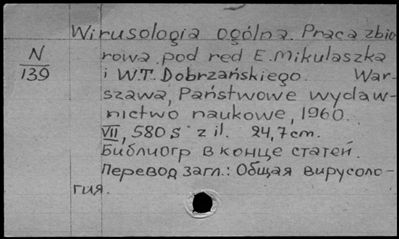 Wirusologia ogólna. Praca zbio-
N
139
rowa pod red E. Mikulaszka
i W.T. Dobrzańskiego. War-
szawa, Państwowe wydaw-
nictwo naukowe, 1960.
VII, 580 s z il. 24,7 cm.
Библиогр в конце статей.
Перевод загл.: Общая вирусоло-
гия.